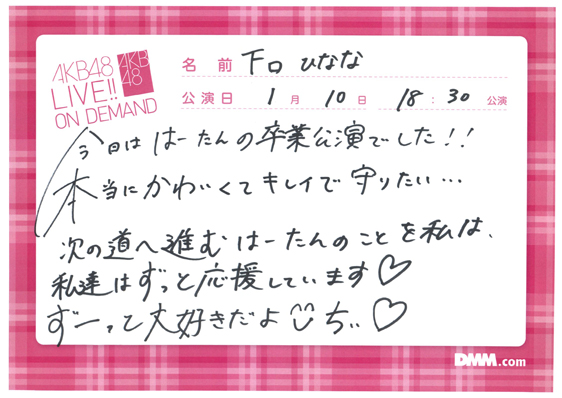 AKB48
LIVE!!
ON DEMAND
AKB
48
名 前 下口 ひなな
公演日 1月 10日 18:30 公演
今日は はーたんの卒業公演でした!!
本当にかわいくてキレイで守りたい…
次の道へ進むはーたんのことを私は、
私達はずっと応援しています♡
ずーって大好きだよ ちぃ♡
DMM.com